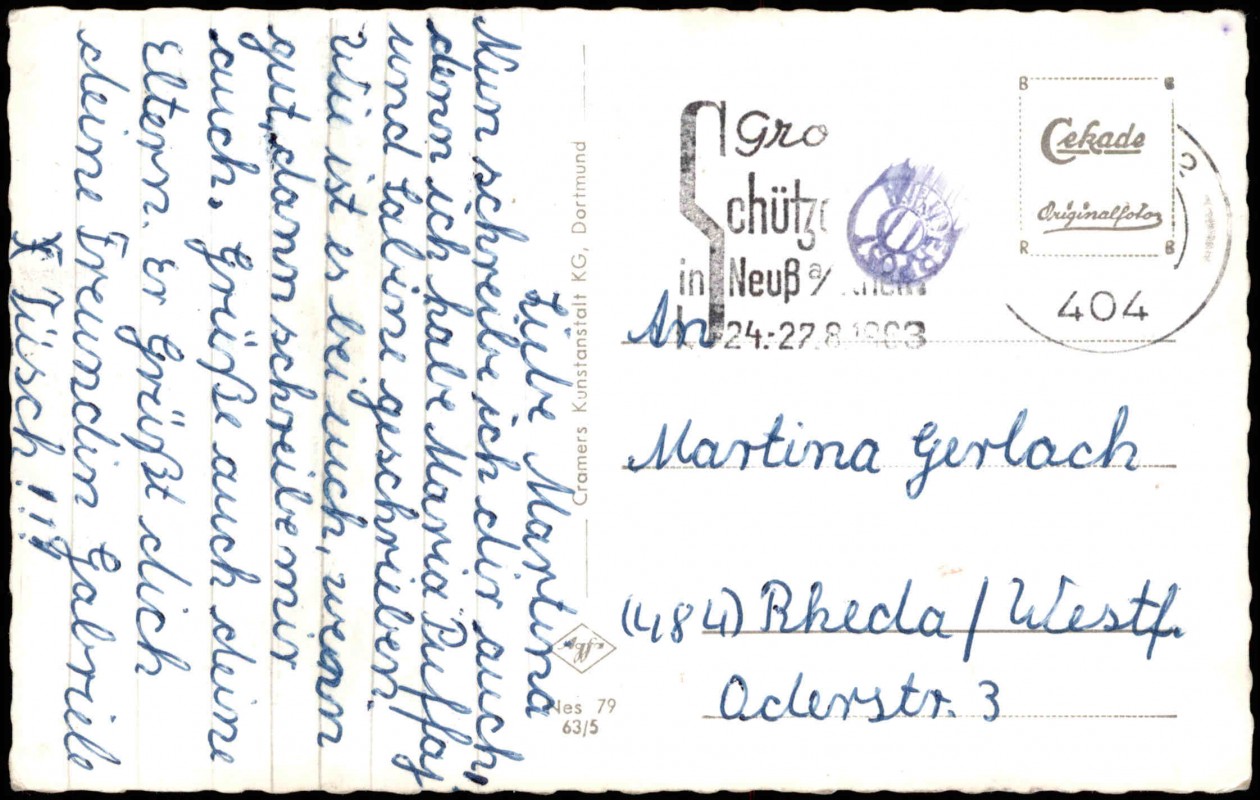 Liebe Martina
Nun schreibe ich dir auch,
denn ich habe Maria Ruffas
und Sabine geschrieben.
Wie ist es bei euch, wenn
gut, dann schreibe mir
auch. Grüße auch deine
Eltern. Er Grüßt dich
deine Freundin Gabriele
Tüsch!!!
Cramers Kunstanstalt KG, Dortmund
Agfa
Nes 79
63/5
Gro
chütze
in Neuß a/
24.-27.8.1963
B B
Cekade
Originalfotos
R B
404
An
Martina Gerlach
(484) Rheda / Westf.
Oderstr. 3